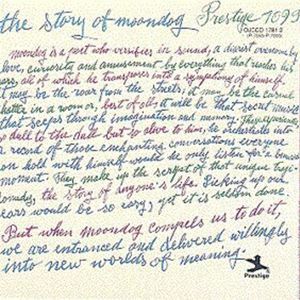 the story of moondog Prestige 7099
OJCCD-1741-2
(P-7099)
moondog is a poet who versifies in sound, a diarist overcome by
love, curiosity and amusement by everything that reaches his
ears all of which he transposes into a symphony of himself.
it may be the roar from the streets, it may be the casual
chatter in a room or, best of all, it will be that secret music
that seeps through imagination and memory. These experiences
so dull to the dull but so alive to him, he orchestrates into
a record of those enchanting conversations everyone
can hold with himself would he only listen for a bemused
moment. They make up the script of that unique
the story of anyone's life. Picking up our
ears would be so easy, yet it is seldom done.
But when moondog compels us to do it,
we are entranced and delivered willingly
into new worlds of meaning.
Prestige